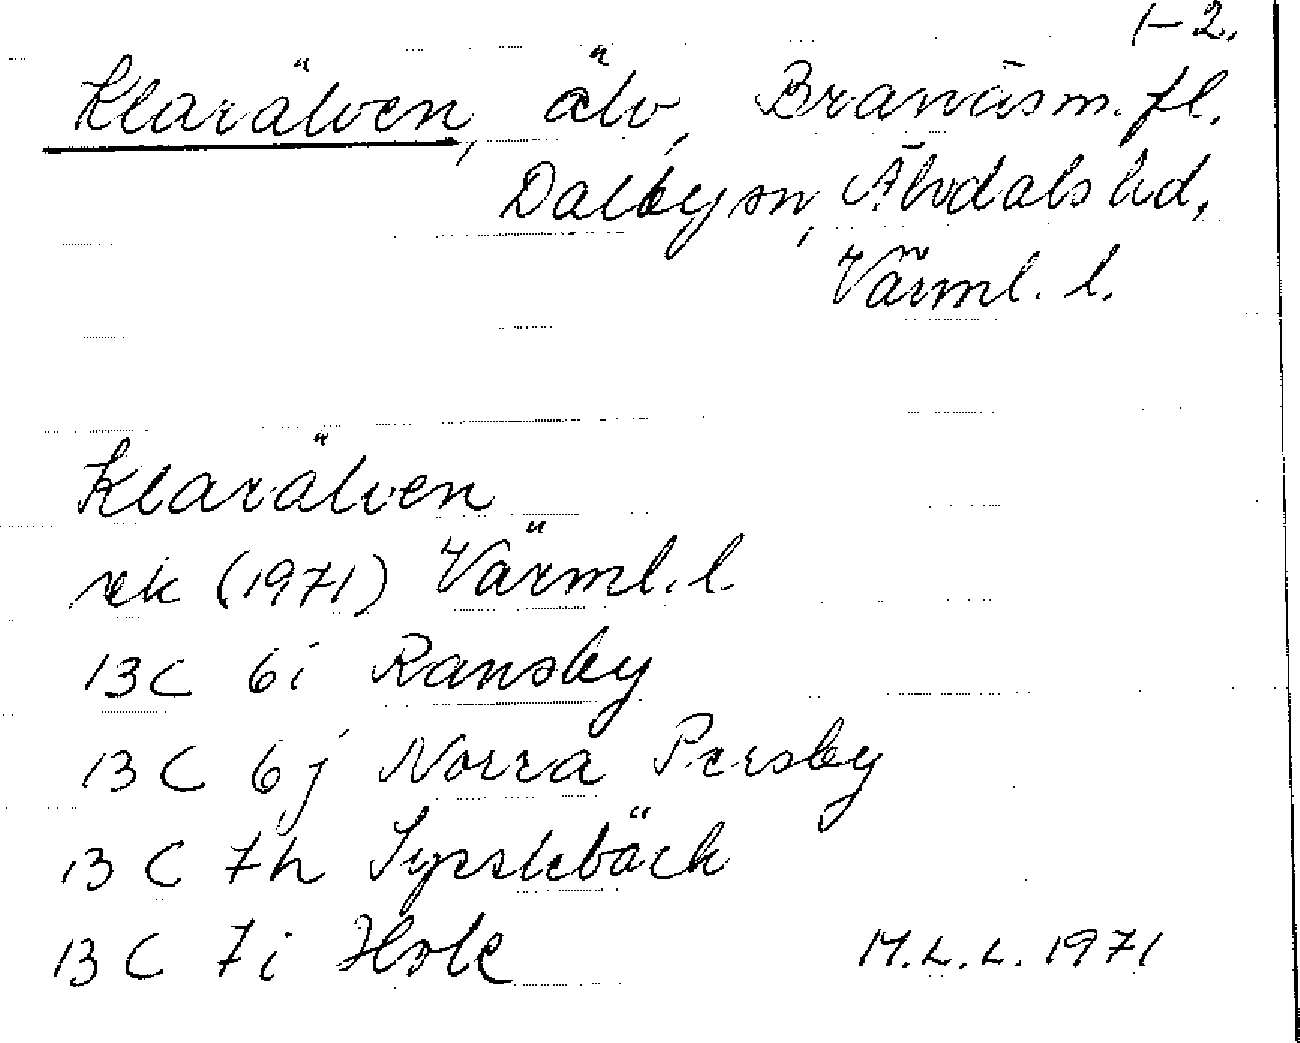 1-2.
Klarälven, älv, Branäsm.fl.
Dalby sn, Älvdals hd,
Värml. l.
Klarälven
rek (1971) Värml. l.
13C 6i Ransby
13C 6j Norra Persby
13C 7h Sysslebäck
13C 7i Hole
M.L.L. 1971